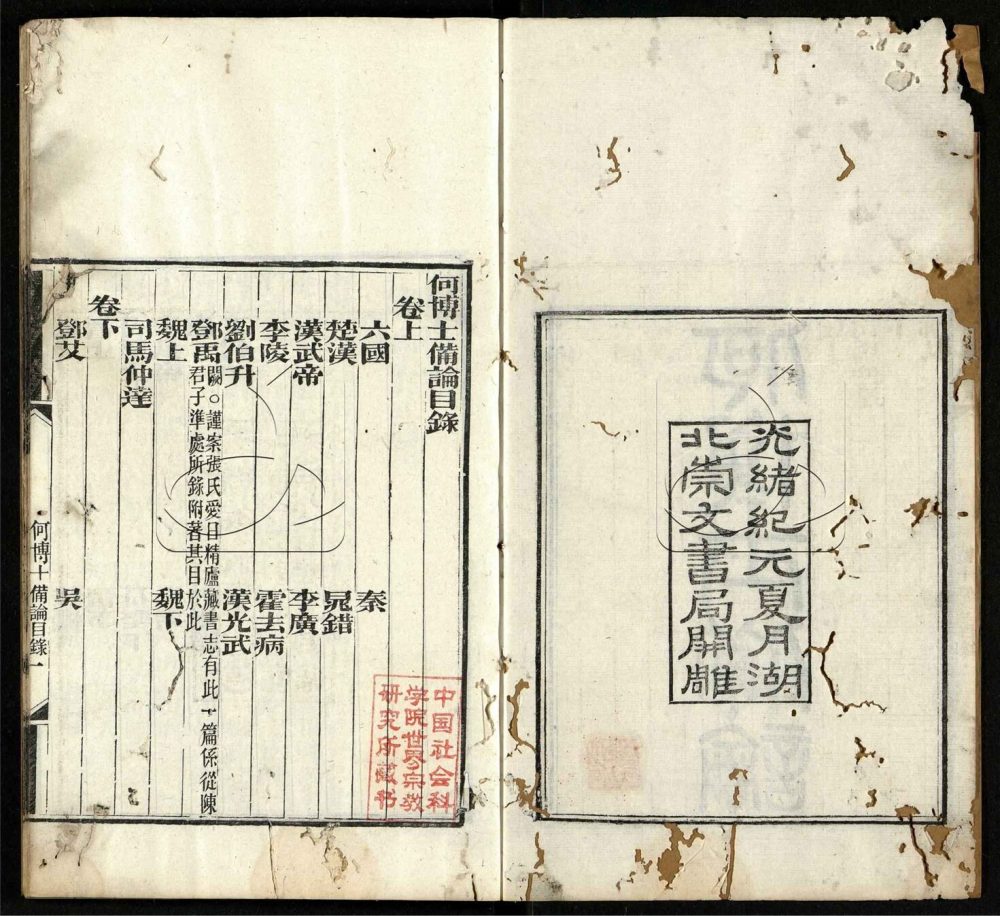 光緒紀元夏月湖
北崇文書局開雕
何博士備論目錄
卷上
六國
秦
楚漢
晁錯
漢武帝
李廣
李陵
霍去病
劉伯升
漢光武
鄧禹闕○謹案張氏愛日精廬藏書志有此一篇係從陳
君子準處所錄附著其目於此
魏上
魏下
司馬仲達
卷下
鄧艾
吳
何博士備論目錄
一
中国社会科
学院世界宗教
研究所藏书